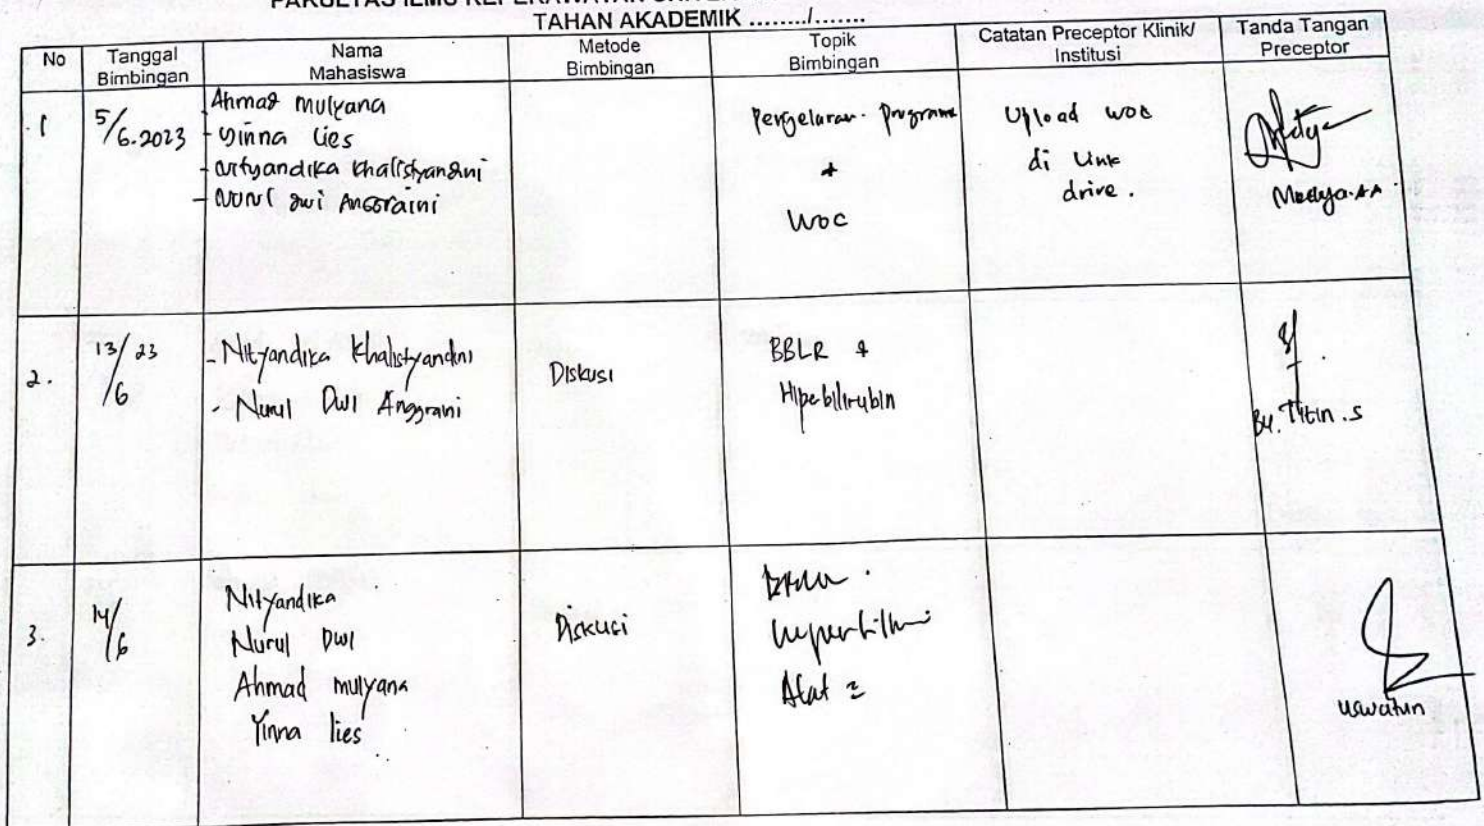 TAHAN AKADEMIK ......../.......
No
Tanggal
Bimbingan
Nama
Mahasiswa
Metode
Bimbingan
Topik
Bimbingan
Catatan Preceptor Klinik/
Institusi
Tanda Tangan
Preceptor
1
5/6.2023
Ahmad mulyana
- Yinna lies
- Nityandika Khalistyandini
- Nurul Dwi Anggraini
Pergelaran. Programe
+
WOC
Upload WOC
di link
drive.
2.
13/23
/6
- Nityandika Khalistyandini
- Nurul Dwi Anggraini
Diskusi
BBLR &
Hipebilirubin
Bu. Titin .S
3.
14/6
Nityandika
Nurul Dwi
Ahmad mulyana
Yinna lies
Diskusi
Alat 2